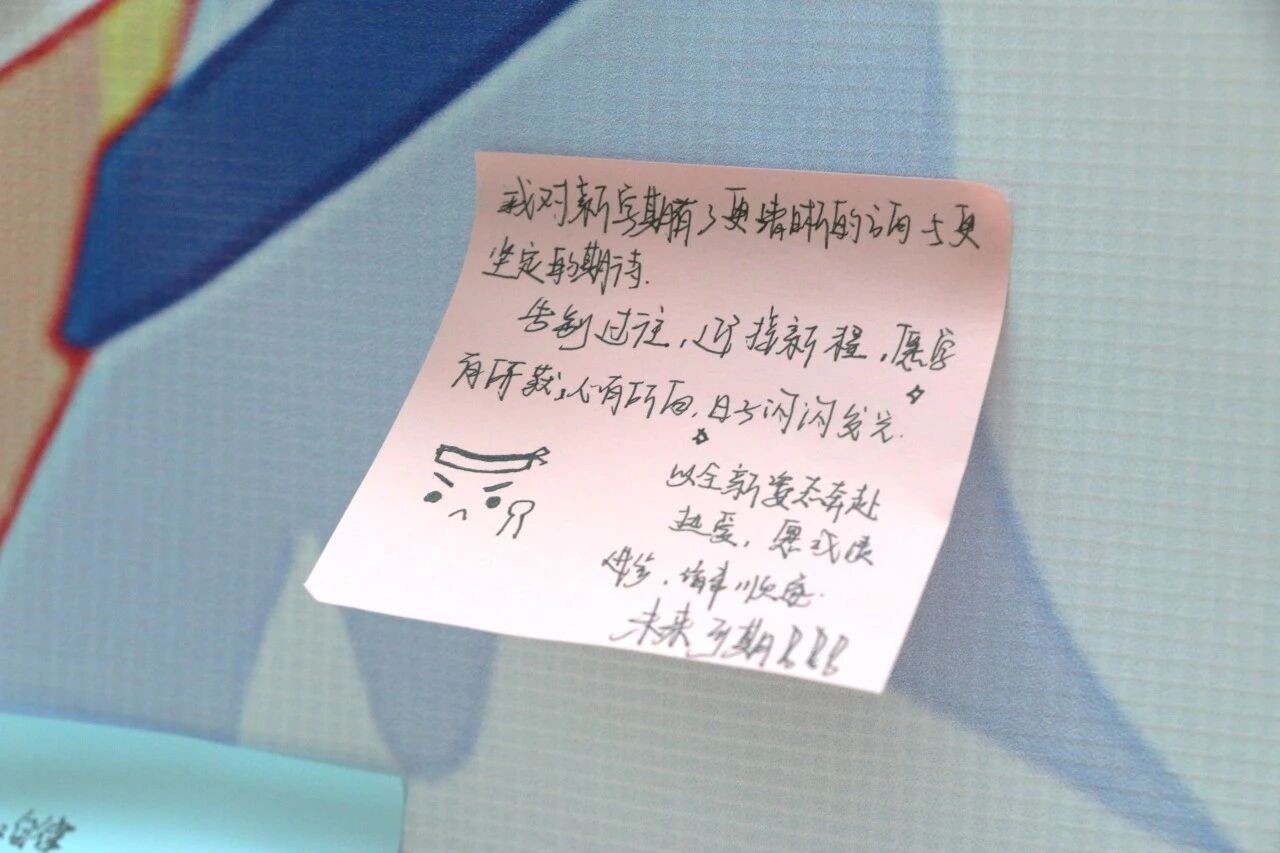 我对新学期有了更清晰的方向与更
坚定的期待.
告别过往,迎接新程,愿学
有所获,心有所向,日子闪闪发光.
以全新姿态奔赴
热爱,愿我
皆顺意.
未来可期!!!
自律